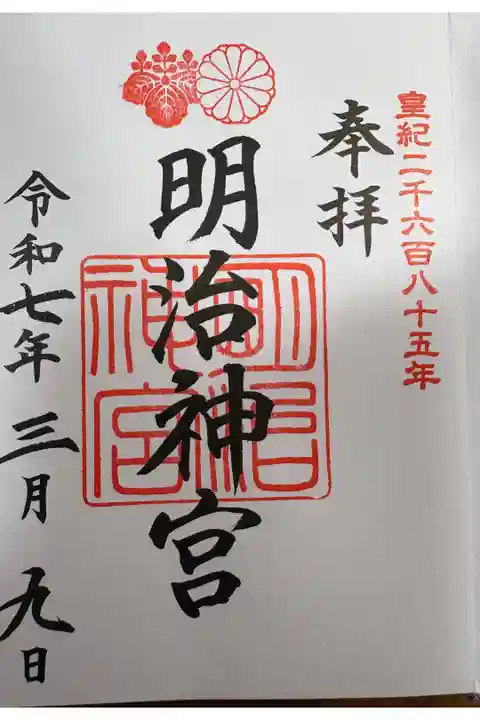 皇紀二千六百八十五年
奉拝
明治神宮
明治神宮
令和七年三月九日